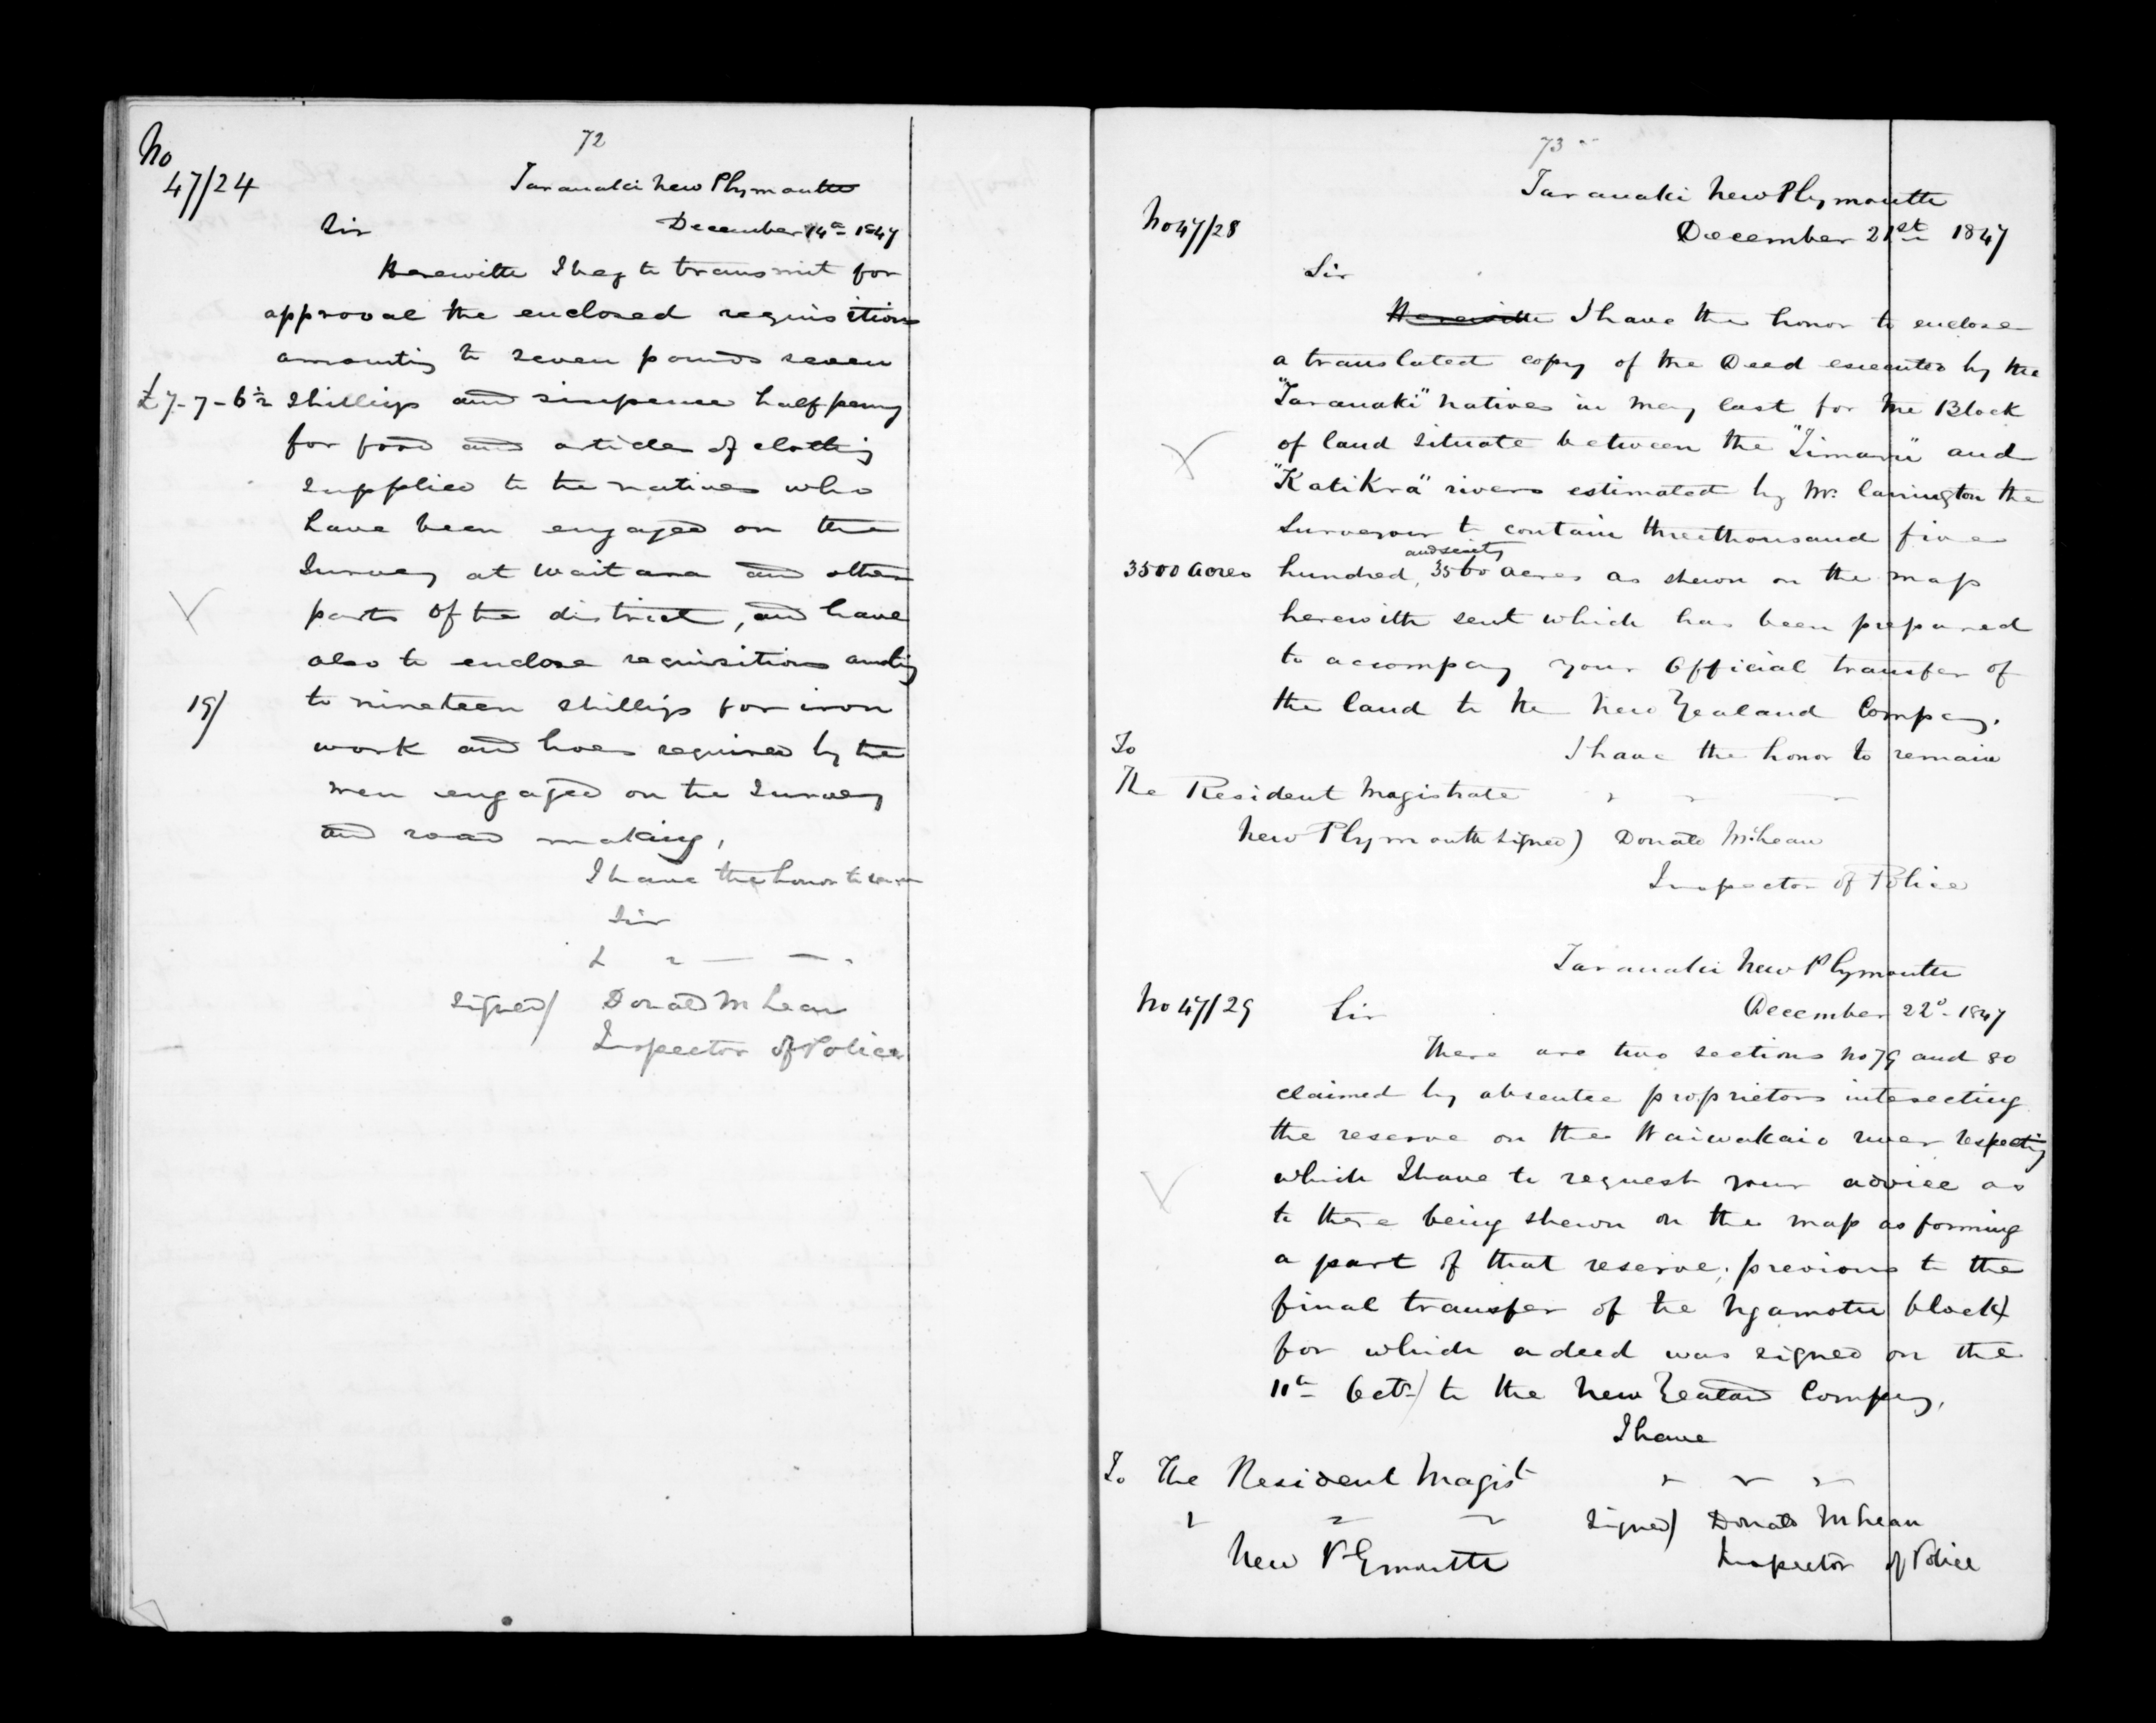 72
No
47/24
Taranaki New Plymouth
Sir
December 14th 1847
Herewith I beg to transmit for
approval the enclosed requisitions
amounting to seven pounds seven
£7-7-6½ shillings and sixpence halfpenny
for food and articles of clothing
supplied to the natives who
have been engaged on the
Survey at Waitara and other
parts of the district, and have
also to enclose requisitions amtig
19/ to nineteen shillings for iron
work and hoes required by the
men engaged on the Survey
and road making,
I have the honor to remain
Sir
signed/ Donald McLean
Inspector of Police
73
Taranaki New Plymouth
No 47/28
December 21st 1847
Sir
Herewith I have the honor to enclose
a translated copy of the Deed executed by the
"Taranaki" natives in May last for the Block
of land situate between the "Timaru" and
"Katikra" rivers estimated by Mr. Carrington the
Surveyor to contain three thousand five
and sixty
3500 acres hundred, 3560 acres as shewn on the map
herewith sent which has been prepared
to accompany your Official transfer of
the land to the New Zealand Company.
To
I have the honor to remain
The Resident Magistrate
New Plymouth signed) Donald McLean
Inspector of Police
Taranaki New Plymouth
No 47/29
Sir
December 22d 1847
There are two sections No 79 and 80
claimed by absentee proprietors intersecting
the reserve on the Waiwakaio river respecting
which I have to request your advice as
to there being shewn on the map as forming
a part of that reserve; previous to the
final transfer of the Ngamotu block
for which a deed was signed on the
11th Octr) to the New Zealand Company.
I have
To The Resident Magist
signed/ Donald McLean
New Plymouth
Inspector of Police